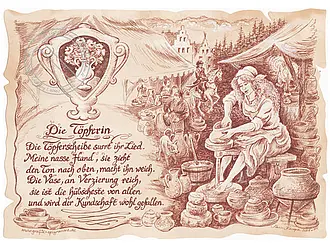 Die Töpferin
Die Töpferscheibe surrt ihr Lied.
Meine nasse Hand, sie zieht
den Ton nach oben, macht ihn weich.
Die Vase, an Verzierung reich,
sie ist die hübscheste von allen
und wird der Kundschaft wohl gefallen.